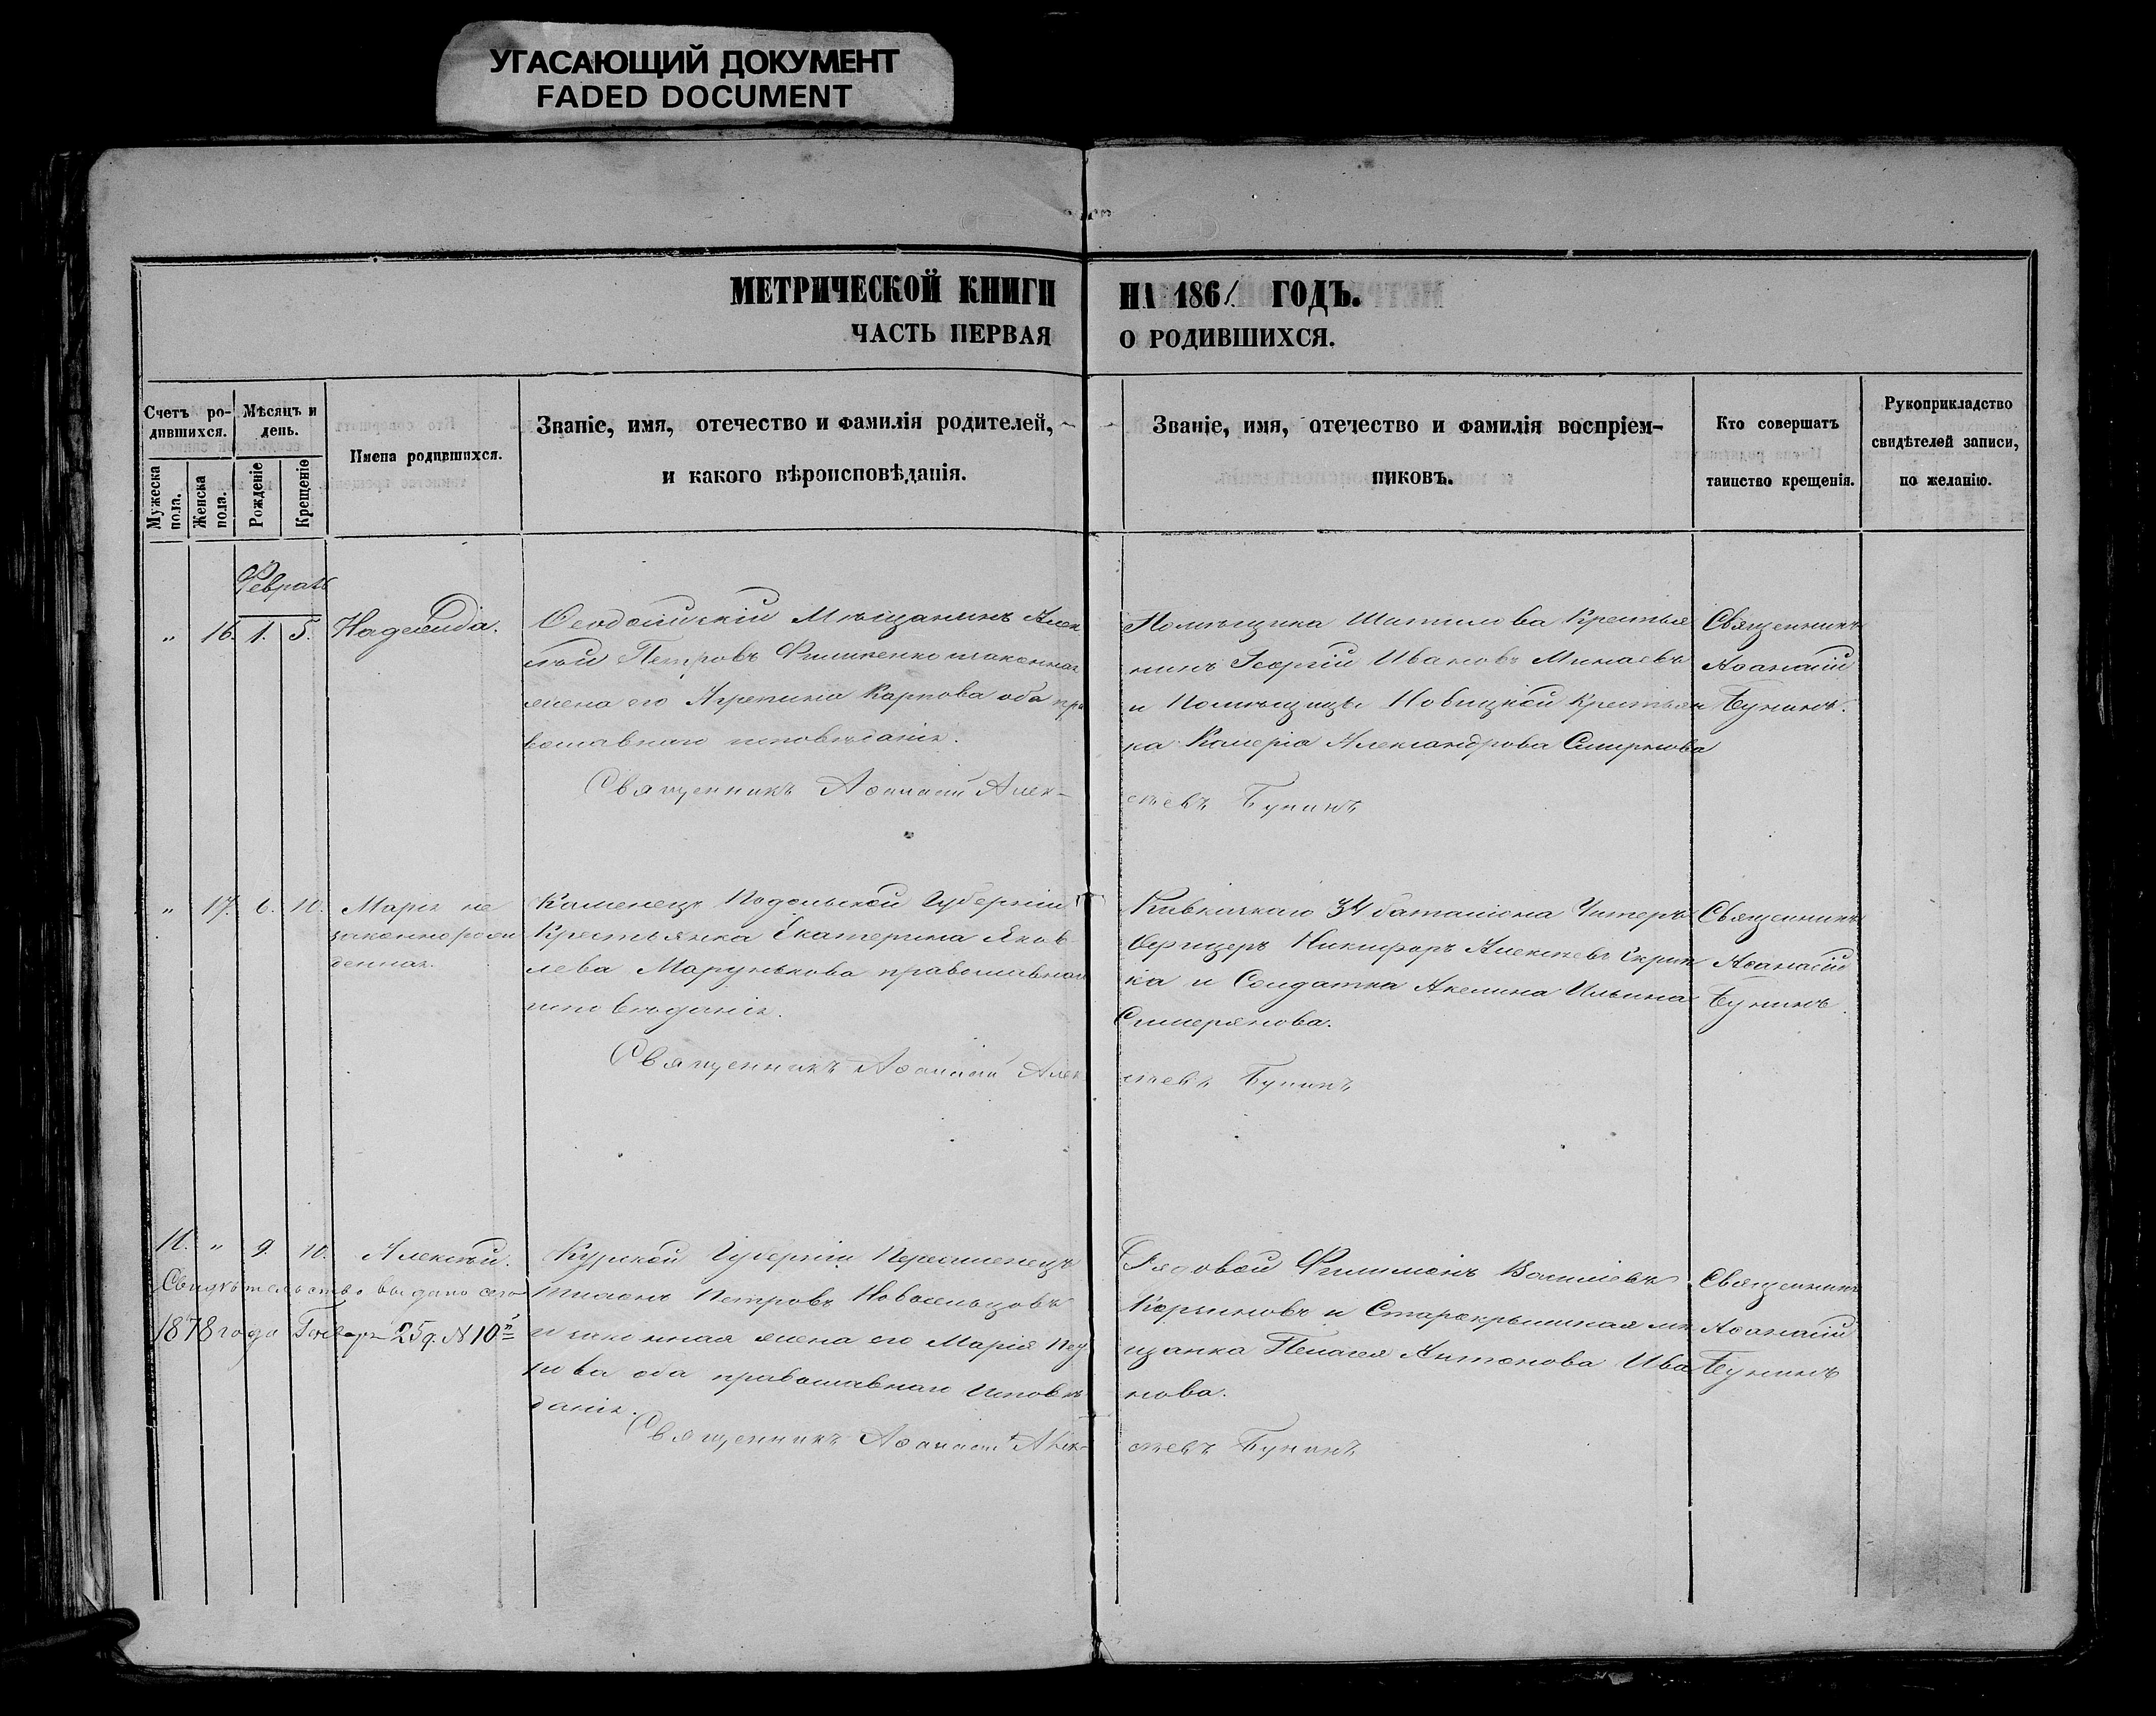 УГАСАЮЩИЙ ДОКУМЕНТ
FADED DOCUMENT
МЕТРИЧЕСКОЙ КНИГИ НА 1861 ГОДЪ.
ЧАСТЬ ПЕРВАЯ О РОДИВШИХСЯ.
Счетъ ро-
дившихся.
Мужеска пола.
Женска пола.
Мѣсяцъ и
день.
Рожденіе
Крещеніе
Имена родившихся.
Званіе, имя, отечество и фамилія родителей,
и какого вѣроисповѣданія.
Званіе, имя, отечество и фамилія воспріем-
никовъ.
Кто совершатъ
таинство крещенія.
Рукоприкладство
свидѣтелей записи,
по желанію.
Февраль
" 16. 1. 5. Надежда.
Ѳеодосійскій Мѣщанинъ Алек
сѣй Петровъ Филипенко и законная
жена его Агрепина Карпова оба пра
вославнаго исповѣданія.
Священникъ Аѳанасій Алек-
Помѣщика Шатилова Крестья
нинъ Георгій Ивановъ Минаевъ
и Помѣщицы Новицкой Крестьян
ка Калерія Александрова Смирнова
сѣевъ Бунинъ
Священникъ
Аѳанасій
Бунинъ.
" 17. 6. 10. Марія не
законнорож
денная.
Каменецъ Подольской Губерніи
Крестьянка Екатерина Яков
лева Марунькова православнаго
исповѣданія.
Священникъ Аѳанасій Алек
баталіона Унтеръ
Офицеръ Никифоръ Алексѣевъ Скрип
ка и Солдатка Акелина Ильина
сѣевъ Бунинъ
Священникъ
Аѳанасій
Бунинъ.
11. " 9. 10. Алексѣй.
Свидѣтельство выдано сего
1878 года Генваря 25 д. № 10й
Курской Губерніи Переселенецъ
Петровъ Новосельцовъ
и законная жена его Марія
оба православнаго Исповѣ
данія.
Священникъ Аѳанасій Алек-
Рядовой Филимонъ Василіевъ
и Старокрымская мѣ
щанка Пелагея Антонова Ива
нова.
сѣевъ Бунинъ
Священникъ
Аѳанасій
Бунинъ